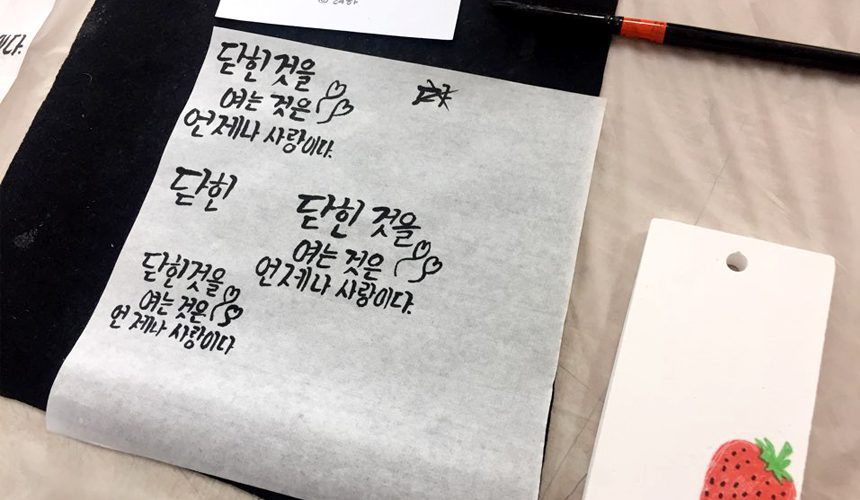 닫힌 것을
여는 것은
언제나 사랑이다.
닫힌
닫힌 것을
여는 것은
언제나 사랑이다.
닫힌것을
여는 것은
언제나 사랑이다